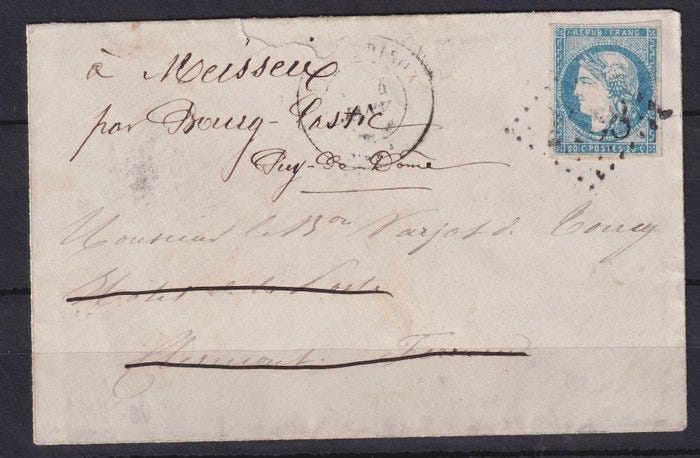 à Meisseix
par Bourg-Lastic
Puy-de-Dôme
Monsieur le Bon Varjot de Toucy
Hôtel de la Poste
Clermont Ferrand
REPUB. FRANC.
20 C POSTES 20 C